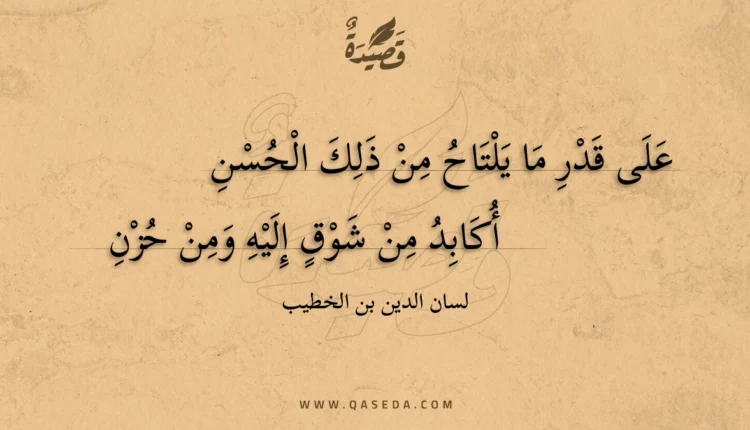 قَصِيدَةٌ
عَلَى قَدْرِ مَا يَلْتَاحُ مِنْ ذَلِكَ الْحُسْنِ
أُكَابِدُ مِنْ شَوْقٍ إِلَيْهِ وَمِنْ حُزْنِ
لسان الدين بن الخطيب
WWW.QASEDA.COM